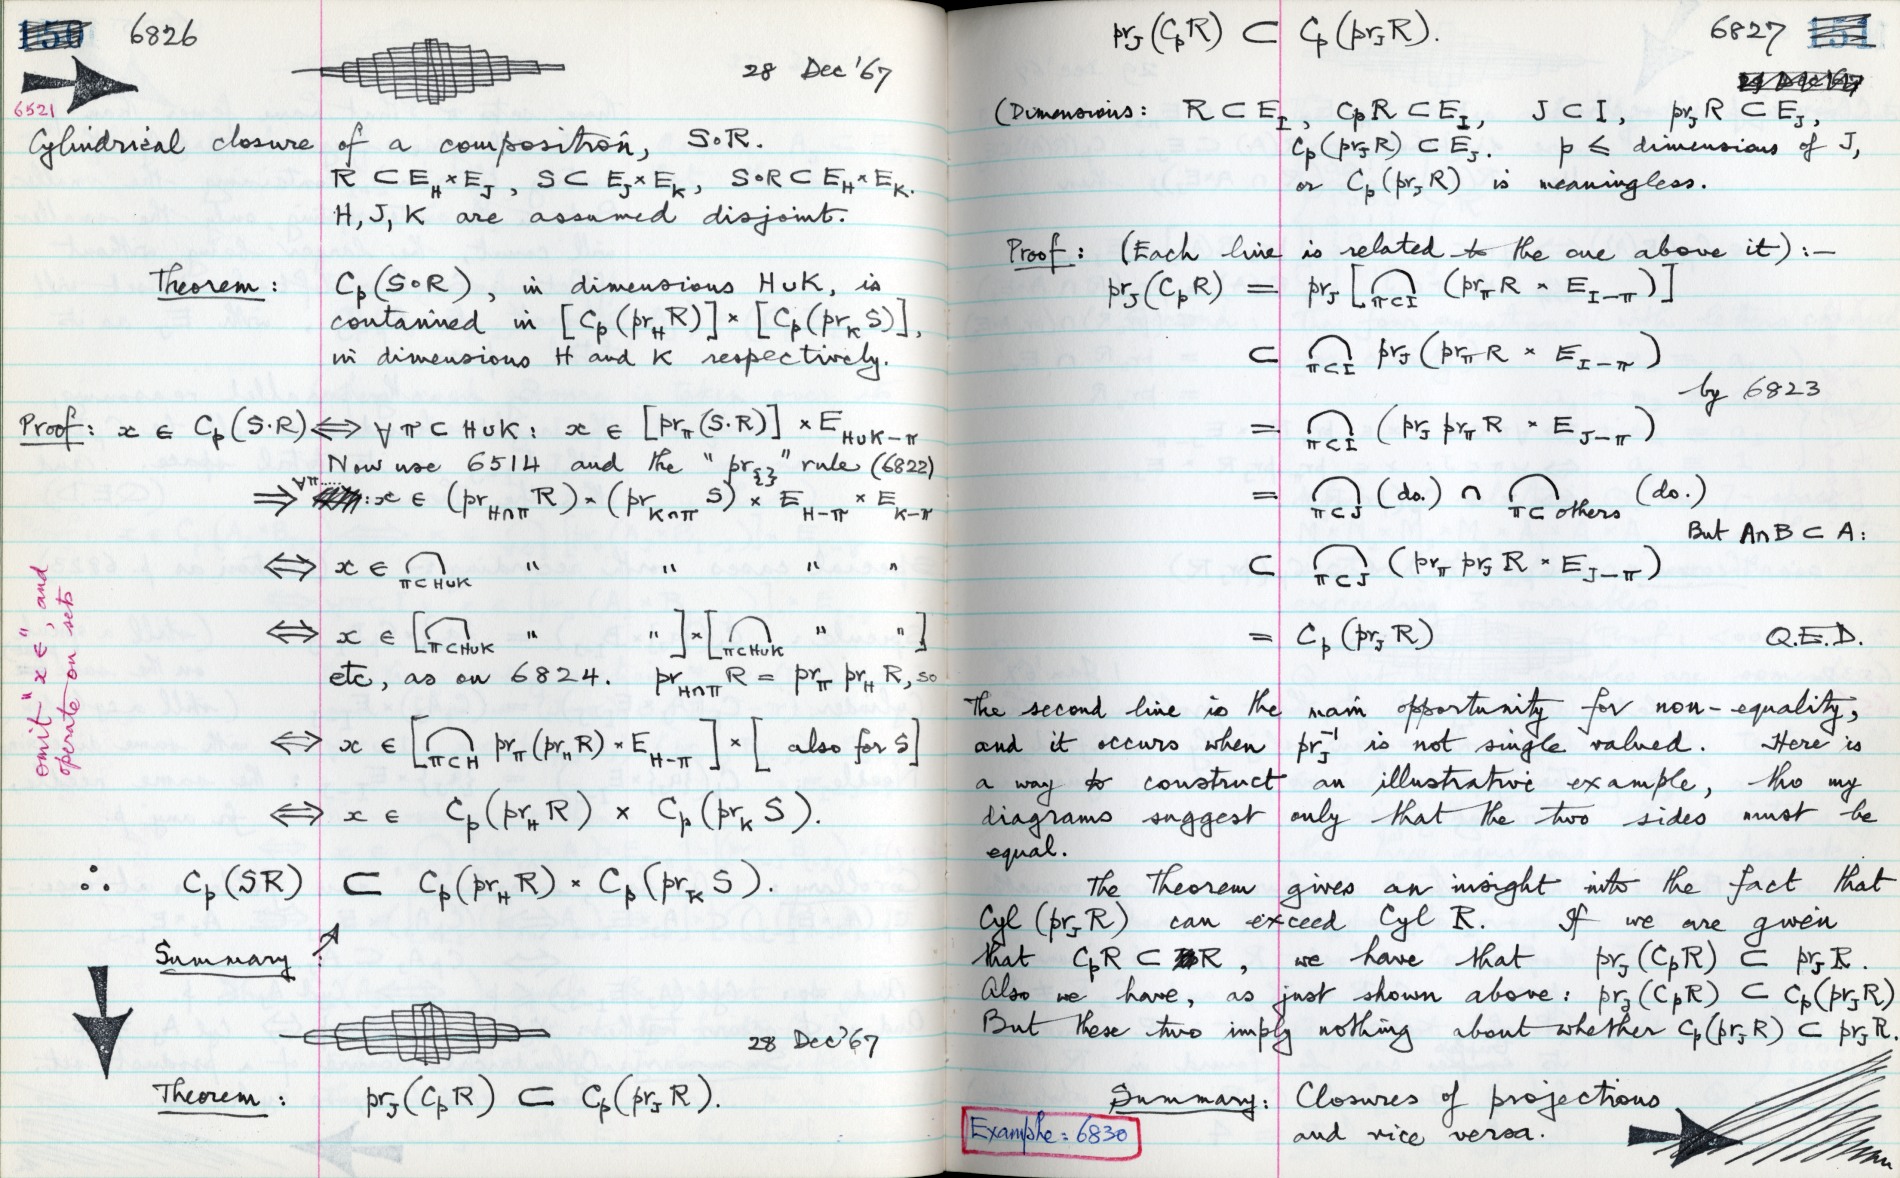 150 6826
28 Dec '67
6521
Cylindrical closure of a composition, S∘R.
R ⊂ E_H × E_J, S ⊂ E_J × E_K, S∘R ⊂ E_H × E_K.
H, J, K are assumed disjoint.
Theorem: C_p(S∘R), in dimensions H∪K, is
contained in [C_p(pr_H R)] × [C_p(pr_K S)],
in dimensions H and K respectively.
Proof: x ∈ C_p(S·R) ⟺ ∀π ⊂ H∪K: x ∈ [pr_π(S·R)] × E_{H∪K−π}
Now use 6514 and the "pr_{}" rule (6822)
⟹ ∀π: x ∈ (pr_{H∩π} R) × (pr_{K∩π} S) × E_{H−π} × E_{K−π}
⟺ x ∈ ⋂_{π⊂H∪K} " " " "
⟺ x ∈ [⋂_{π⊂H∪K} " "] × [⋂_{π⊂H∪K} " "]
etc, as on 6824. pr_{H∩π} R = pr_π pr_H R, so
⟺ x ∈ [⋂_{π⊂H} pr_π(pr_H R) × E_{H−π}] × [also for S]
⟺ x ∈ C_p(pr_H R) × C_p(pr_K S).
omit "x ∈", and
operate on sets
∴ C_p(SR) ⊂ C_p(pr_H R) × C_p(pr_K S).
Summary:
28 Dec '67
Theorem: pr_J(C_p R) ⊂ C_p(pr_J R).
pr_J(C_p R) ⊂ C_p(pr_J R). 6827 151
28 Dec '67
(Dimensions: R ⊂ E_I, C_p R ⊂ E_I, J ⊂ I, pr_J R ⊂ E_J,
C_p(pr_J R) ⊂ E_J. p ≤ dimensions of J,
or C_p(pr_J R) is meaningless.
Proof: (Each line is related to the one above it):—
pr_J(C_p R) = pr_J[⋂_{π⊂I} (pr_π R × E_{I−π})]
⊂ ⋂_{π⊂I} pr_J(pr_π R × E_{I−π})
by 6823
= ⋂_{π⊂I} (pr_J pr_π R × E_{J−π})
= ⋂_{π⊂J} (do.) ∩ ⋂_{π⊂ others} (do.)
But A∩B ⊂ A:
⊂ ⋂_{π⊂J} (pr_π pr_J R × E_{J−π})
= C_p(pr_J R) Q.E.D.
The second line is the main opportunity for non-equality,
and it occurs when pr_J^{-1} is not single valued. Here is
a way to construct an illustrative example, tho my
diagrams suggest only that the two sides must be
equal.
The Theorem gives an insight into the fact that
Cyl(pr_J R) can exceed Cyl R. If we are given
that C_p R ⊂ R, we have that pr_J(C_p R) ⊂ pr_J R.
Also we have, as just shown above: pr_J(C_p R) ⊂ C_p(pr_J R)
But these two imply nothing about whether C_p(pr_J R) ⊂ pr_J R.
Summary: Closures of projections
and vice versa.
Example: 6830